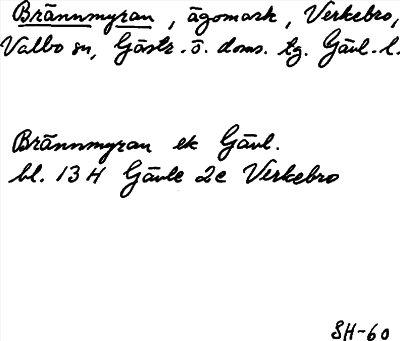 Brännmyran, ägomark, Verkebro,
Valbo sn, Gästr. ö. doms. tg. Gävl. l.
Brännmyran ek Gävl.
bl. 13 H Gävle 2c Verkebro
SH-60